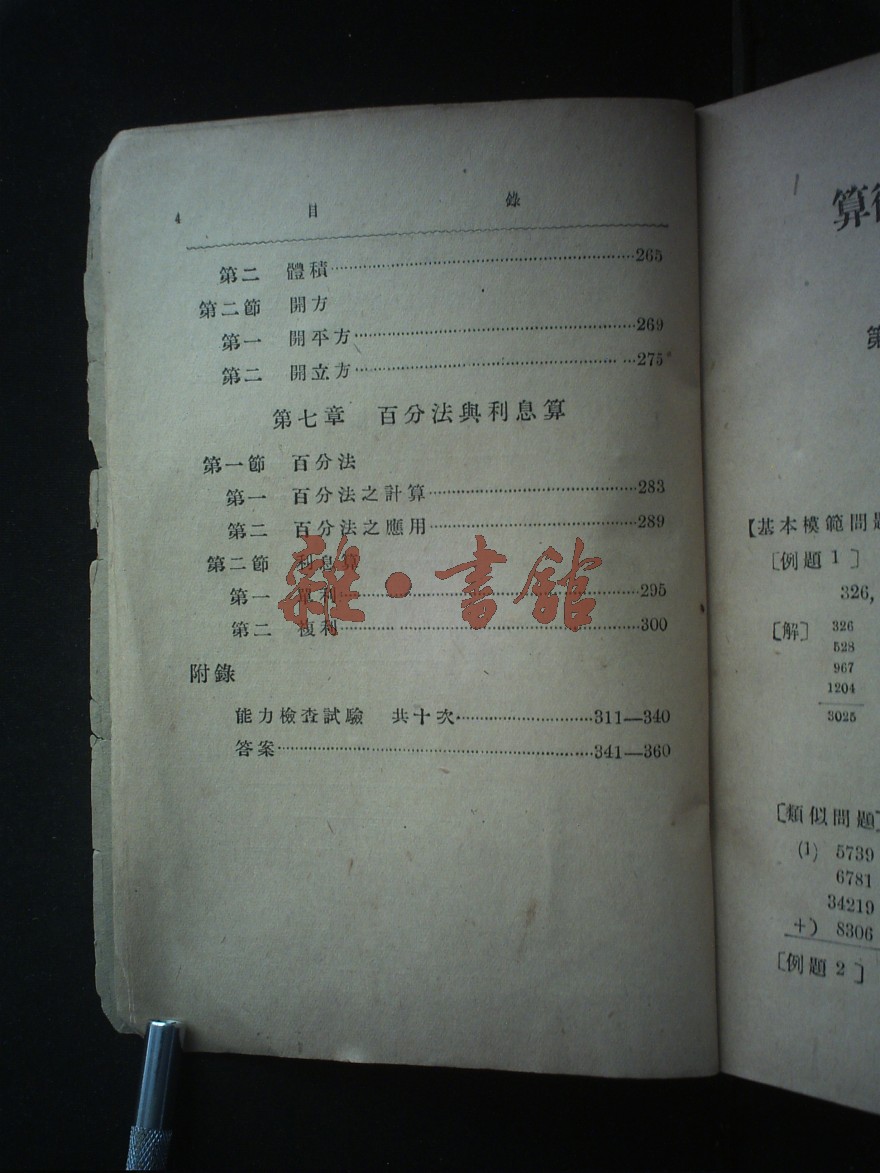 4 目 錄
第二 體積……265
第二節 開方
第一 開平方……269
第二 開立方……275
第七章 百分法與利息算
第一節 百分法
第一 百分法之計算……283
第二 百分法之應用……289
第二節 利息算
第一 單利……295
第二 複利……300
附錄
能力檢查試驗 共十次……311—340
答案……341—360
雜·書館
算
第
【基本模範問題
［例題 1］
326,
［解］ 326
528
967
1204
3025
［類似問題］
(1) 5739
6781
34219
+) 8306
［例題 2］